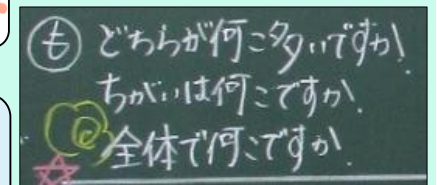 も どちらが何こ多いですか。
ちがいは何こですか。
全体で何こですか。